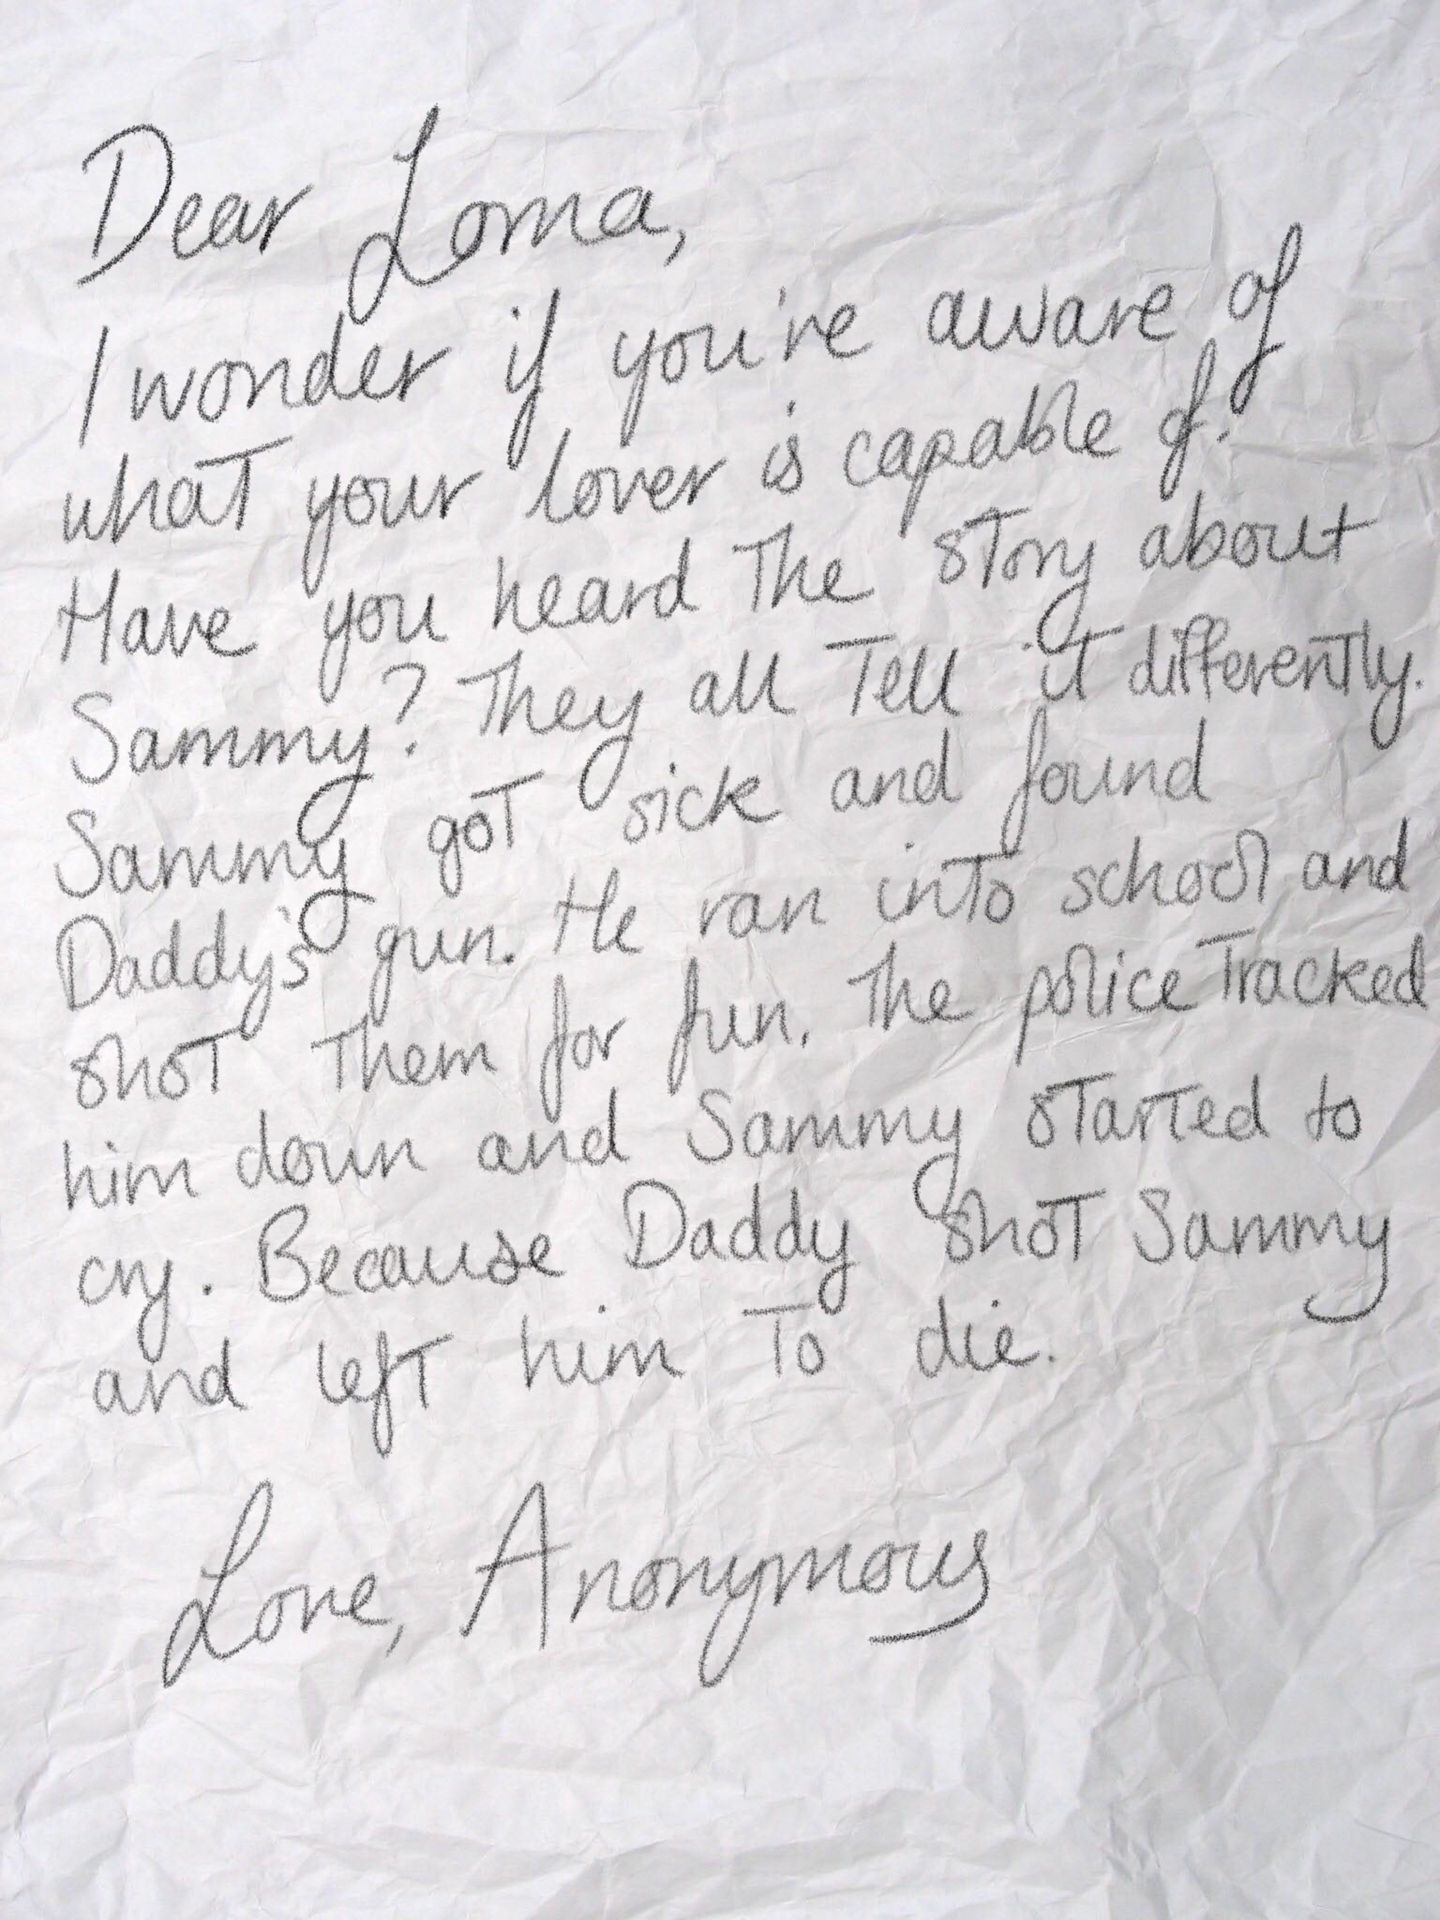 Dear Lorna,
I wonder if you're aware of
what your lover is capable of.
Have you heard the story about
Sammy? They all tell it differently.
Sammy got sick and found
Daddy's gun. He ran into school and
shot them for fun. The police tracked
him down and Sammy started to
cry. Because Daddy shot Sammy
and left him to die.
Love, Anonymous